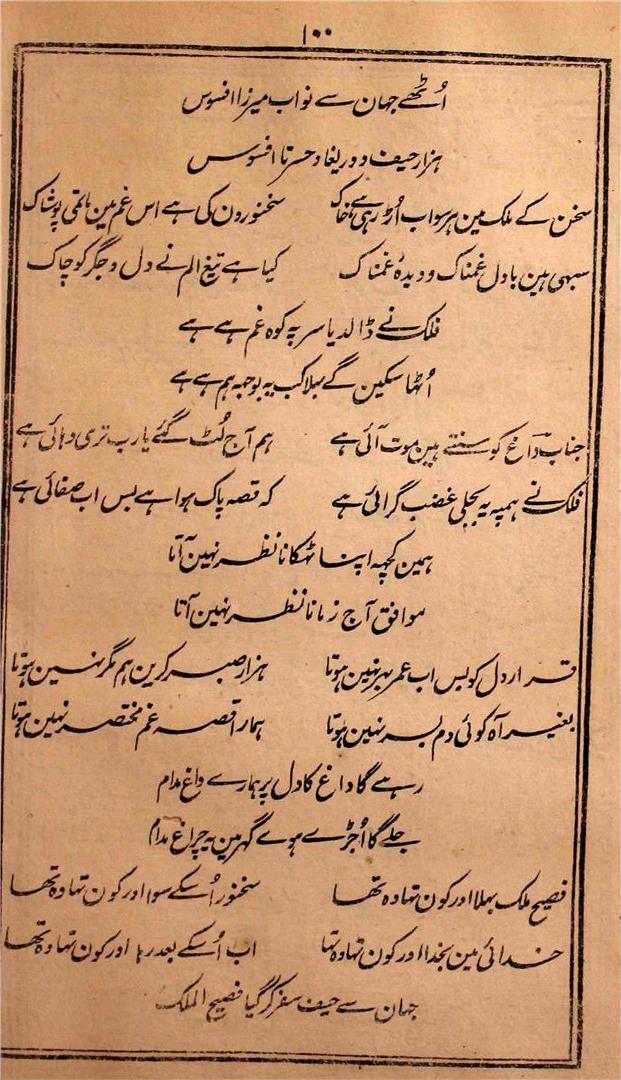 ۱۰۰
اُٹھے جہان سے نواب میرزا افسوس
ہزار حیف و دریغا و حسرتا افسوس
سخن کے ملک مین ہر سو اب اُڑ رہی ہے خاک سخنورون کی ہے اس غم مین ماتمی پوشاک
سبھی ہین با دل غمناک و دیدۂ غمناک کیا ہے تیغ الم نے دل و جگر کو چاک
فلک نے ڈالدیا سر پہ کوہ غم ہے ہے
اُٹھا سکین گے بھلا کب یہ بوجھ ہم ہے ہے
جناب داغ کو سنتے ہین موت آئی ہے ہم آج لُٹ گئے یارب تری دہائی ہے
فلک نے ہمپہ یہ بجلی غضب گرائی ہے کہ قصہ پاک ہوا ہے بس اب صفائی ہے
ہمین کچھ اپنا ٹھکانا نظر نہین آتا
موافق آج زمانا نظر نہین آتا
قرار دل کو بس اب عمر بھر نہین ہوتا ہزار صبر کرین ہم مگر نہین ہوتا
بغیر آہ کوئی دم بسر نہین ہوتا ہمارا قصہ غم مختصر نہین ہوتا
رہے گا داغ کا دل پر ہمارے داغ مدام
جلے گا اُجڑے ہوے گھر مین یہ چراغ مدام
فصیح ملک بھلا اور کون تھا وہ تھا سخنور اُسکے سوا اور کون تھا وہ تھا
خدائی مین بخدا اور کون تھا وہ تھا اب اُسکے بعد رہا اور کون تھا وہ تھا
جہان سے حیف سفر کر گیا فصیح الملک